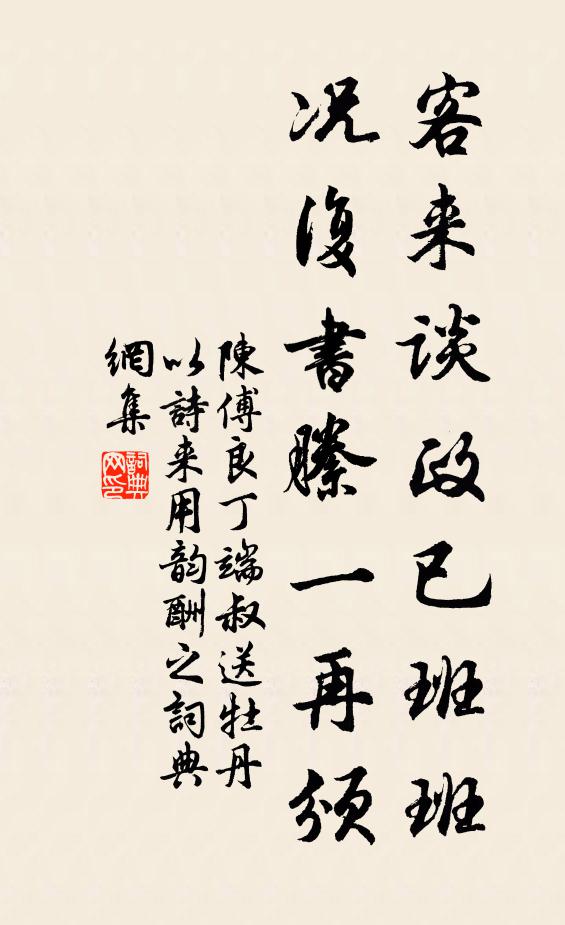 客来談政已班班
况復書縢一再頒
陳傅良丁端叔送牡丹
以詩来用韵酬之詞典
網集
詞典
网印